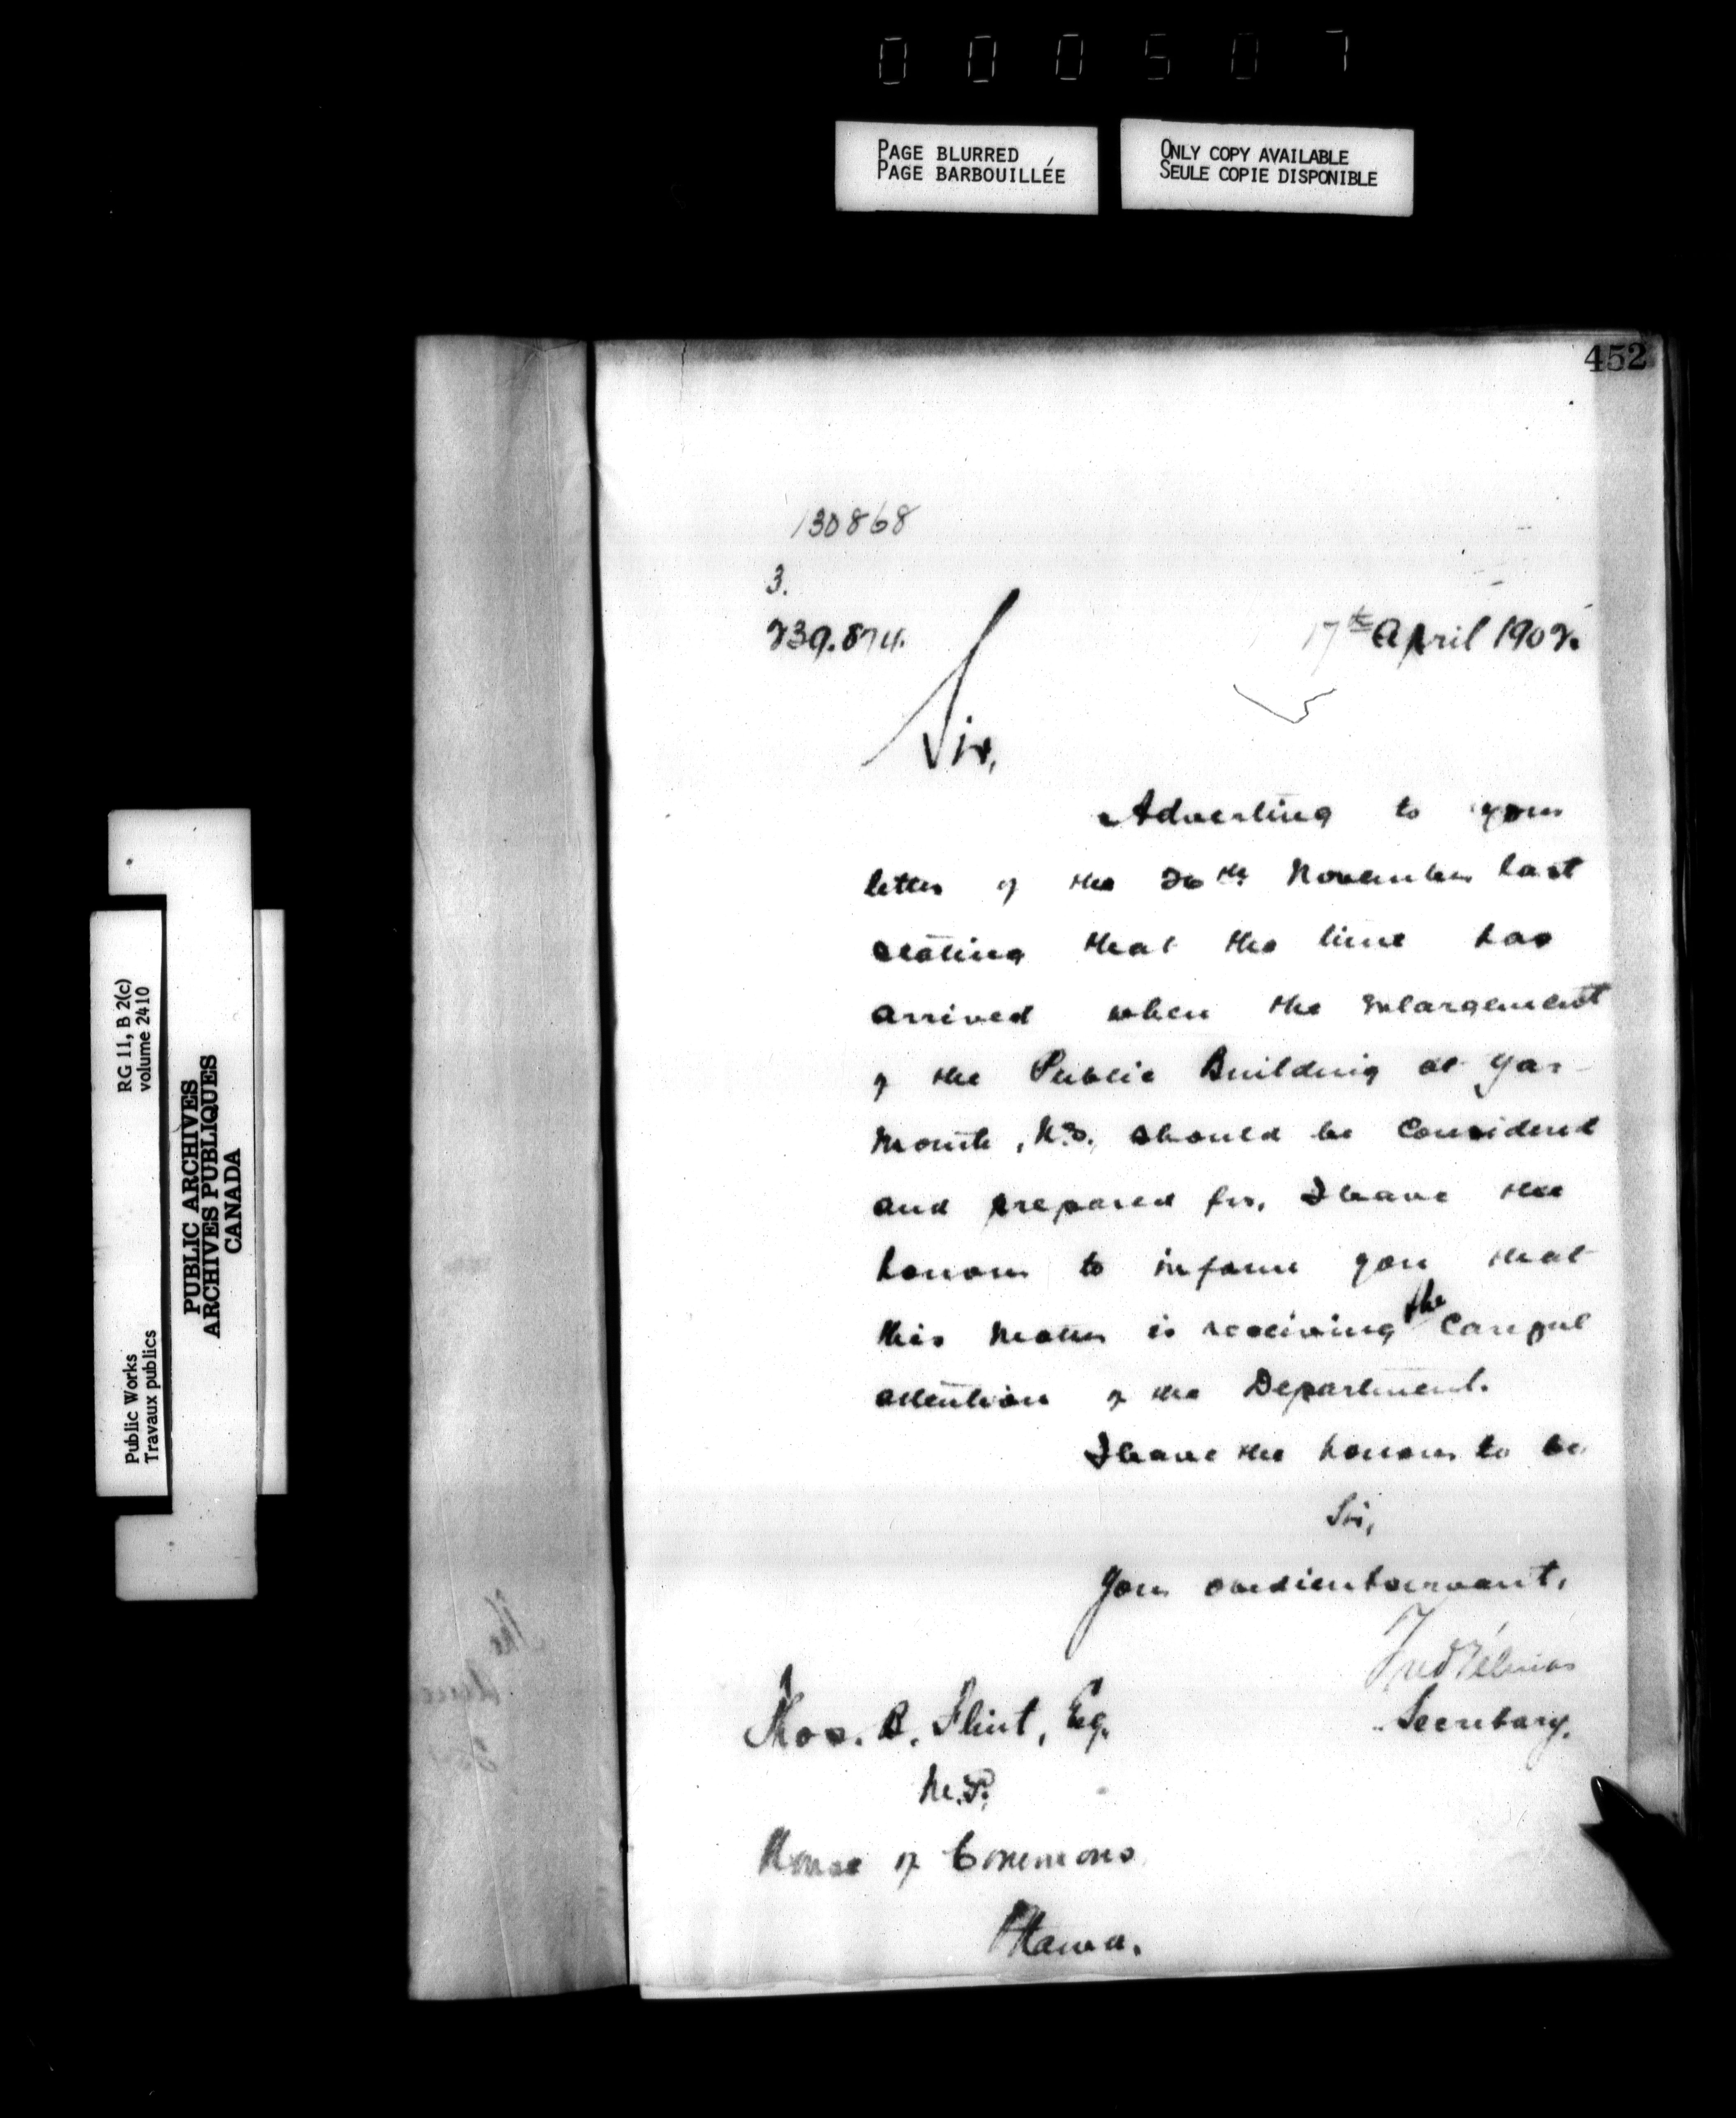 000507
PAGE BLURRED
PAGE BARBOUILLÉE
ONLY COPY AVAILABLE
SEULE COPIE DISPONIBLE
RG 11, B 2(c)
volume 2410
PUBLIC ARCHIVES
ARCHIVES PUBLIQUES
CANADA
Public Works
Travaux publics
452
130868
3.
17th April 1902.
Sir,
Adverting to your
letter of the 26th November last
stating that the time has
arrived when the enlargement
of the Public Building at Yar-
mouth, N.S. should be considered
and prepared for, I have the
honour to inform you that
this matter is receiving the careful
attention of the Department.
I have the honour to be
Sir,
Your obedient servant,
Fred Gélinas
Secretary.
Thos. B. Flint, Esq.
M.P.
House of Commons
Ottawa.